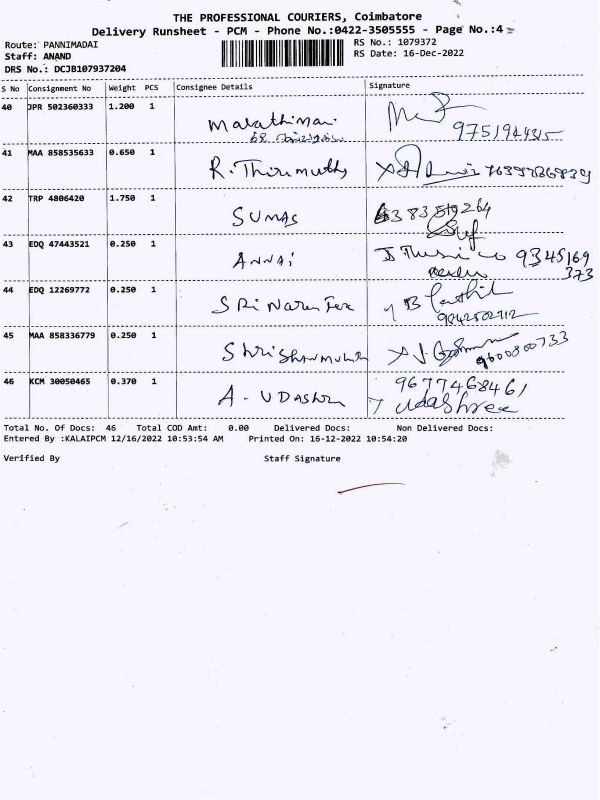 THE PROFESSIONAL COURIERS, Coimbatore
Delivery Runsheet - PCM - Phone No.:0422-3505555 - Page No.:4
Route: PANNIMADAI
RS No.: 1079372
Staff: ANAND
RS Date: 16-Dec-2022
DRS No.: DCJB107937204
S No Consignment No Weight PCS Consignee Details Signature
40 JPR 502360333 1.200 1 Marathimani
41 MAA 858535633 0.650 1 R. Thirumuthy
42 TRP 4806420 1.750 1 SUMAS 6383519264
43 EDQ 47443521 0.250 1 ANNAi 9345169
373
44 EDQ 12269772 0.250 1
9842502112
45 MAA 858336779 0.250 1 9600800733
46 KCM 30050465 0.370 1 A - UDAShree 9677468461
Udashree
Total No. Of Docs: 46 Total COD Amt: 0.00 Delivered Docs: Non Delivered Docs:
Entered By :KALAIPCM 12/16/2022 10:53:54 AM Printed On: 16-12-2022 10:54:20
Verified By Staff Signature